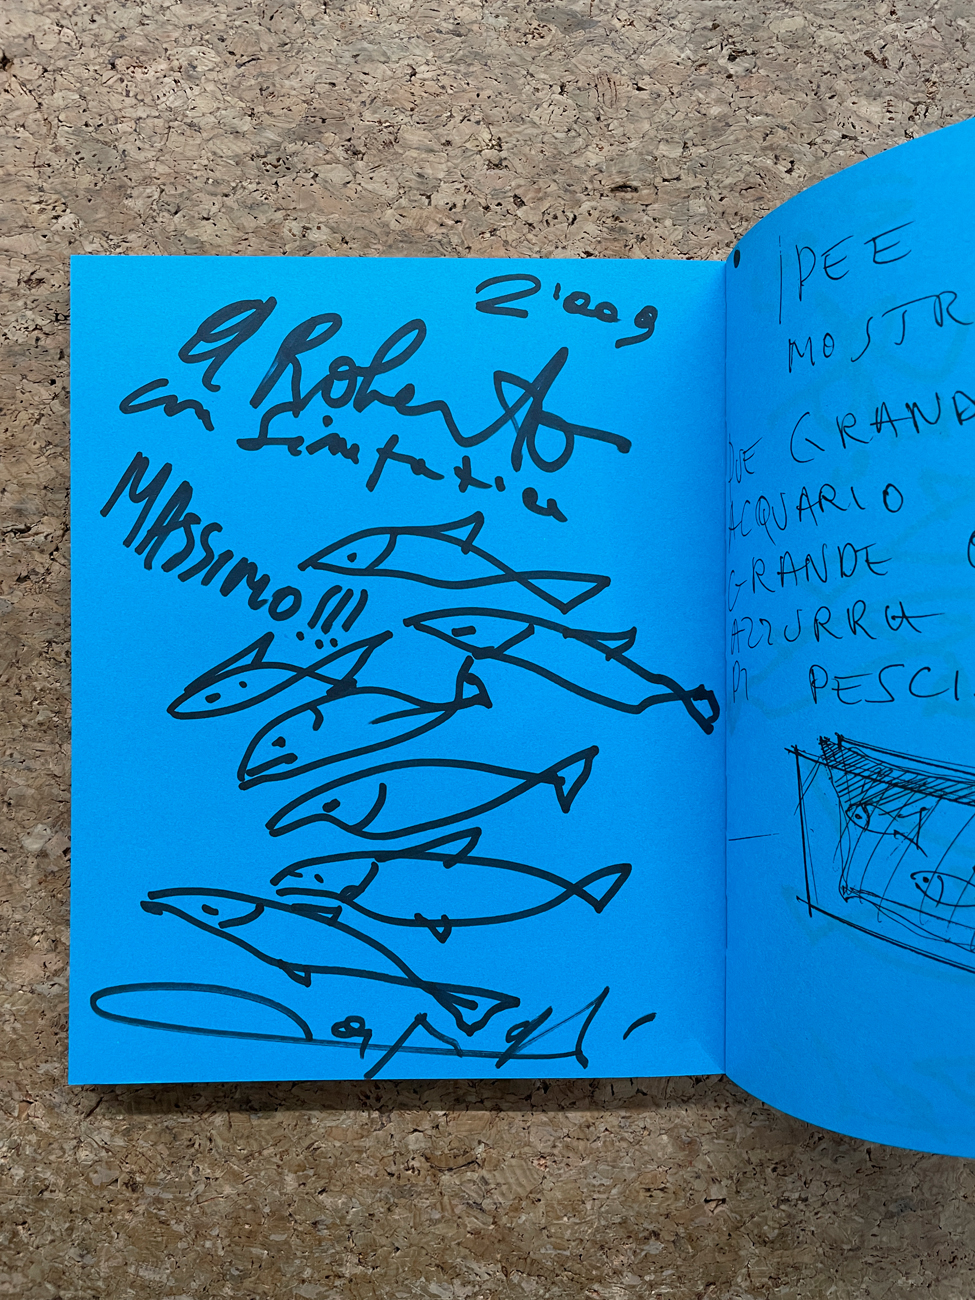 2009
A Roberto
con simpatia
MASSIMO!!!
IPEE
MOSTR
DUE GRANDA
ACQUARIO
GRANDE
AZZURRA
DI PESCI